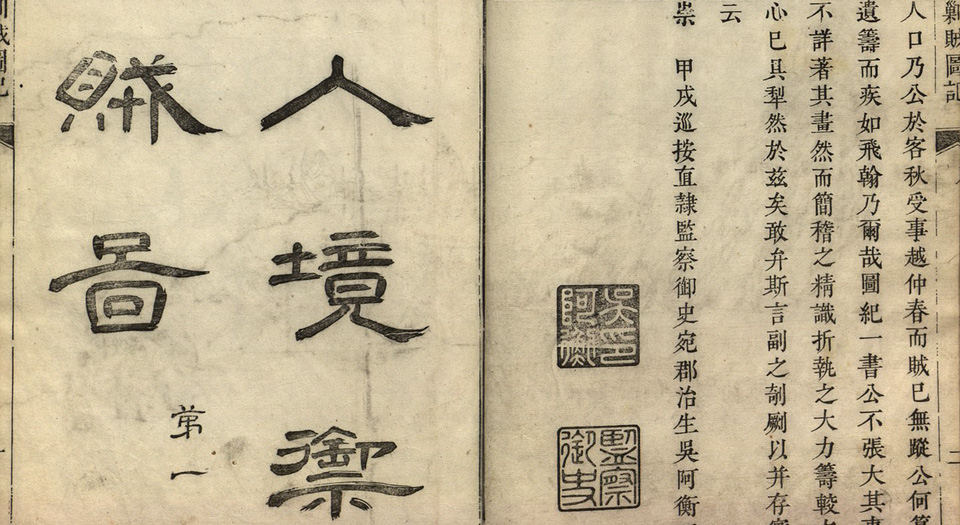 勦賊圖記
人口乃公於客秋受事越仲春而賊巳無蹤公何
遺籌而疾如飛翰乃爾哉圖紀一書公不張大其
不詳著其畫然而簡稽之精識折執之大力籌較
心巳具犁然於茲矣敢弁斯言副之剞劂以并存
云
崇
甲戌巡按直隸監察御史宛郡治生吳阿衡
吳阿衡印
監察御史
入境禦
賊圖
第一
賊圖記